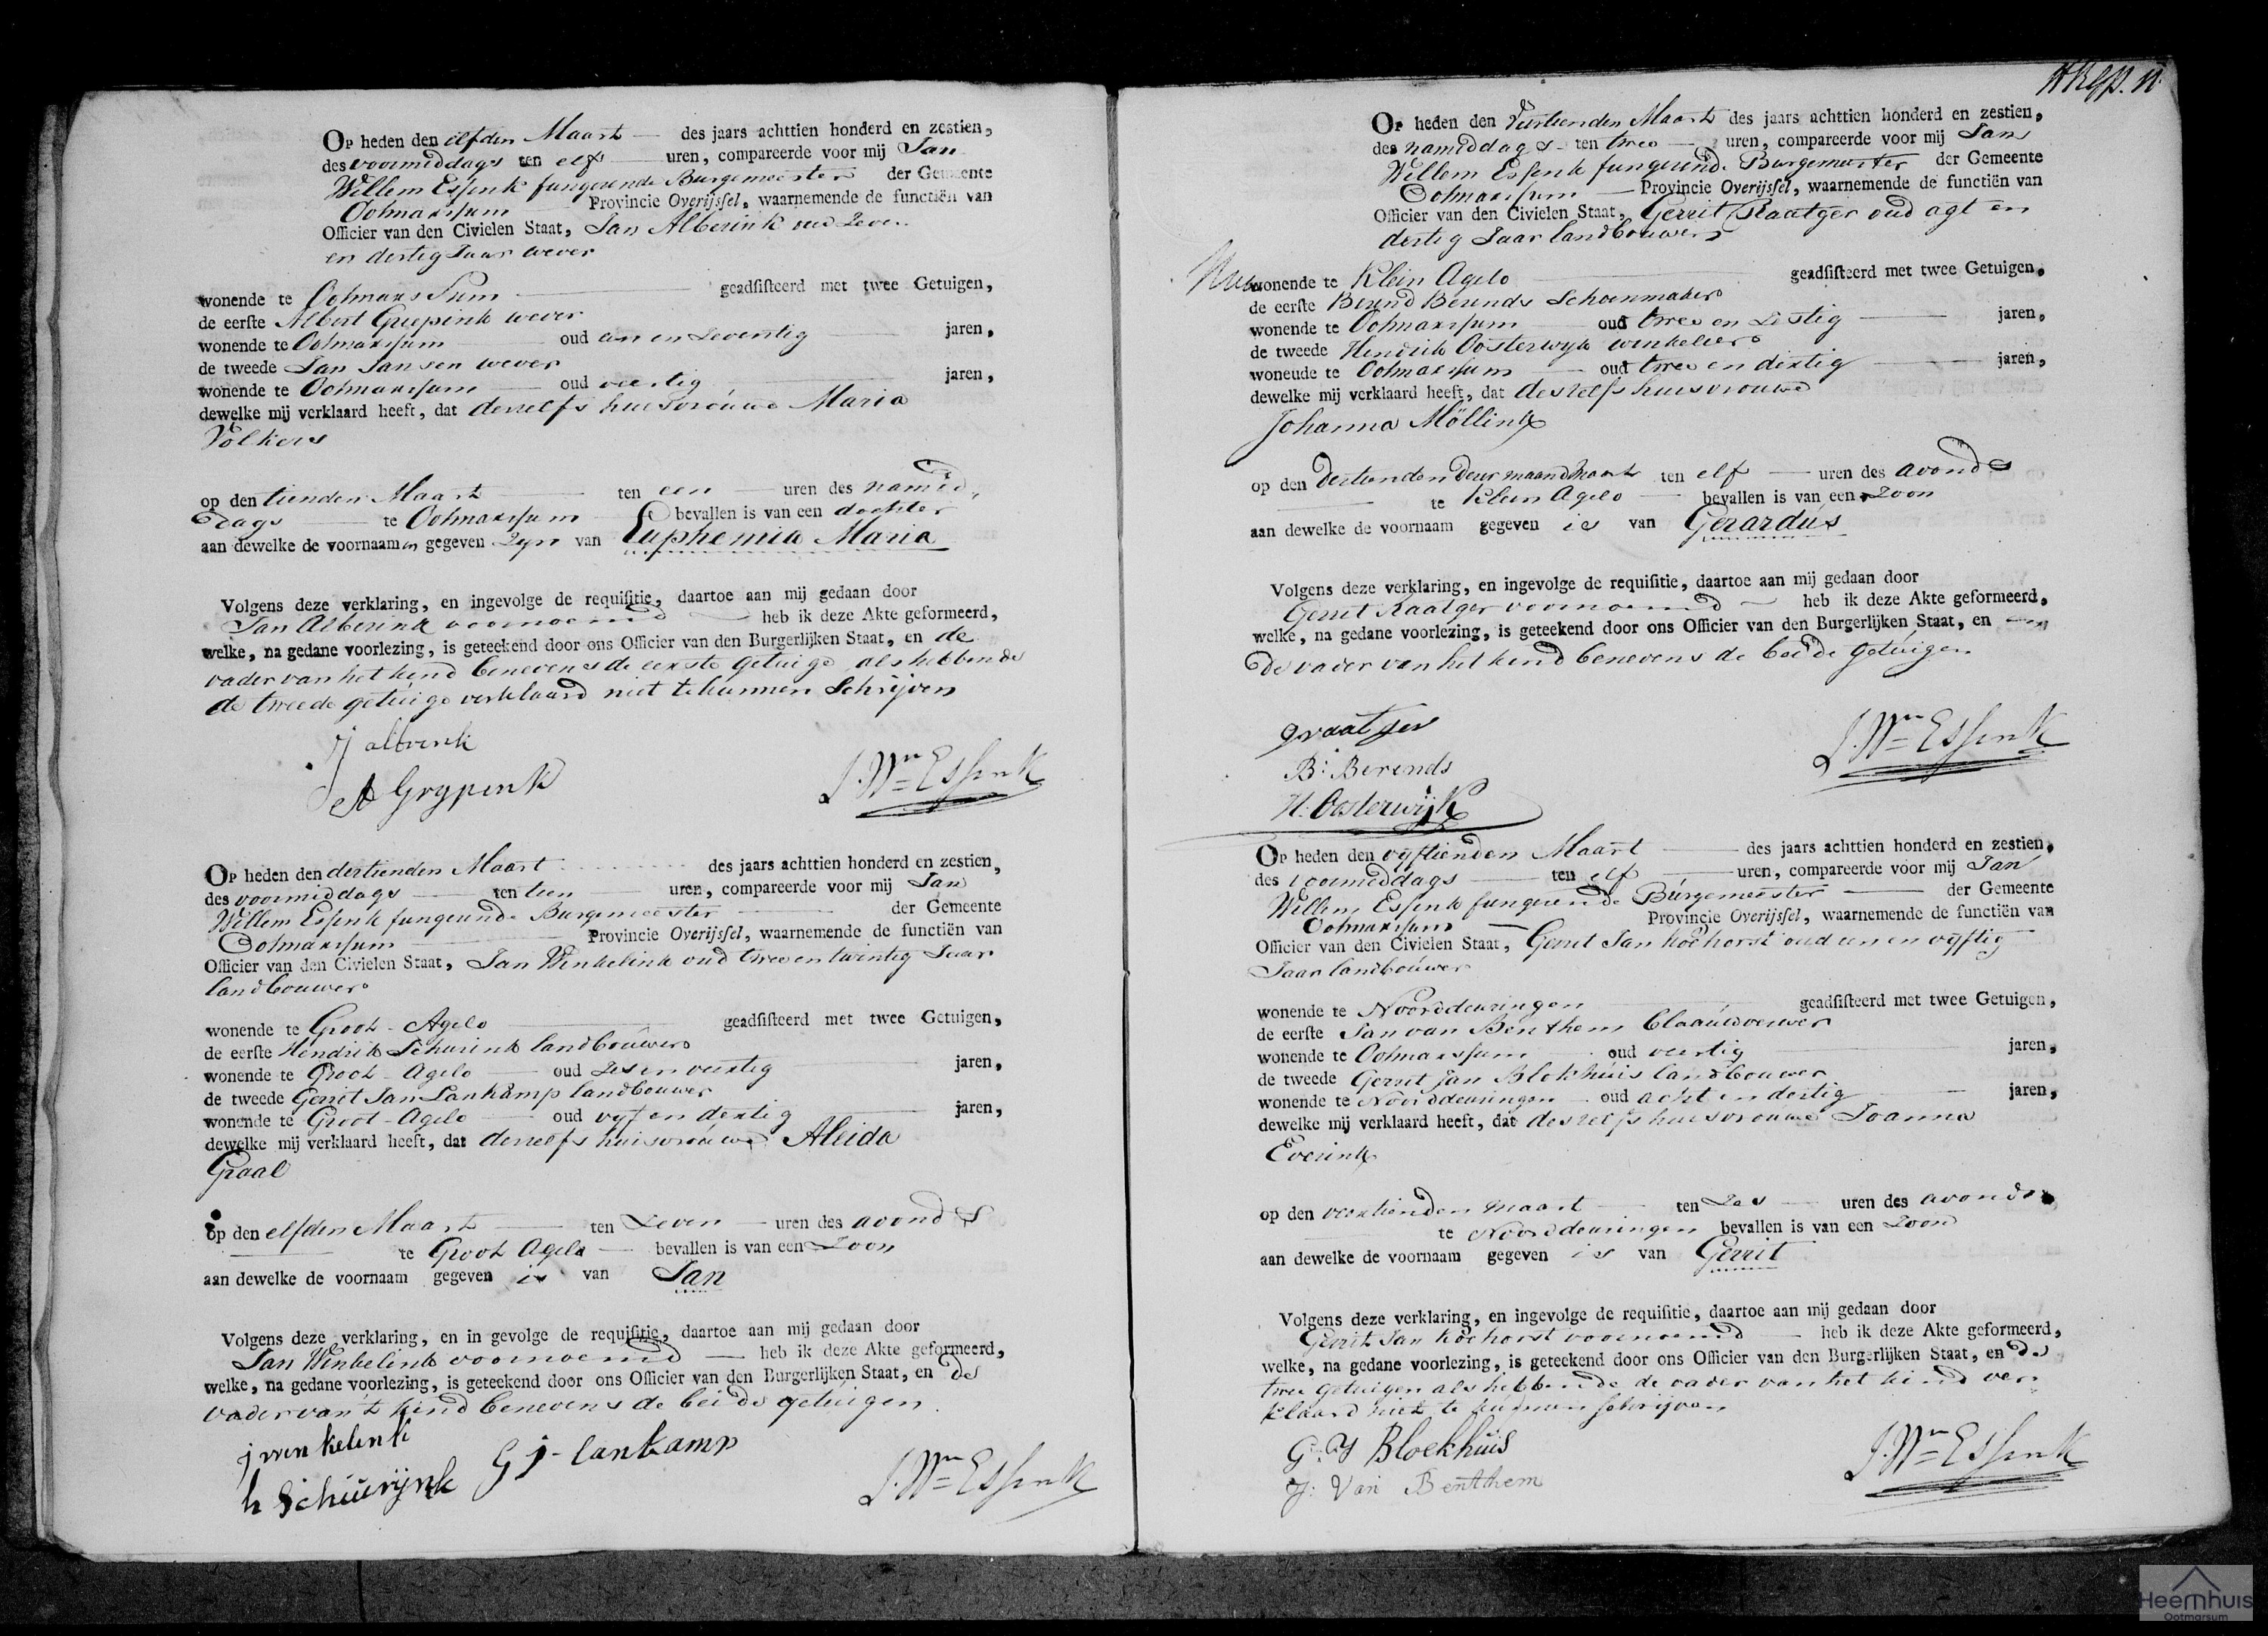 Op heden den elfden Maart des jaars achttien honderd en zestien,
des voormiddags ten elf uren, compareerde voor mij Jan
Willem Essink fungerende Burgemeester der Gemeente
Ootmarssum Provincie Overijssel, waarnemende de functiën van
Officier van den Civielen Staat, Jan Alberink oud zeven
en dertig Jaar wever
wonende te Ootmarssum geadsisteerd met twee Getuigen,
de eerste Albert Greepink wever
wonende te Ootmarssum oud een en zeventig jaren,
de tweede Jan Jansen wever
wonende te Ootmarssum oud veertig jaren,
dewelke mij verklaard heeft, dat deszelfs huisvrouwe Maria
Volkers
op den tienden Maart ten een uren des namid,
dags te Ootmarssum bevallen is van een dochter
aan dewelke de voornaamen gegeven zyn van Euphemia Maria
Volgens deze verklaring, en ingevolge de requisitie, daartoe aan mij gedaan door
Jan Alberink voornoemd heb ik deze Akte geformeerd,
welke, na gedane voorlezing, is geteekend door ons Officier van den Burgerlijken Staat, en de
vader van het kind benevens de eerste getuige als hebbende
de tweede getuige verklaard niet te kunnen Schrijven
J albrink
A Grypink
J. Wm Essink
Op heden den dertienden Maart des jaars achttien honderd en zestien,
des voormiddags ten tien uren, compareerde voor mij Jan
Willem Essink fungerende Burgemeester der Gemeente
Ootmarssum Provincie Overijssel, waarnemende de functiën van
Officier van den Civielen Staat, Jan Winkelink oud twee en twintig Jaar
landbouwer
wonende te Groot-Agelo geadsisteerd met twee Getuigen,
de eerste Hendrik Schurink landbouwer
wonende te Groot-Agelo oud zes en veertig jaren,
de tweede Gerrit Jan Lankamp landbouwer
wonende te Groot-Agelo oud vyf en dertig jaren,
dewelke mij verklaard heeft, dat deszelfs huisvrouwe Aleida
Graal
op den elfden Maart ten Zeven uren des avonds
te Groot Agelo bevallen is van een Zoon
aan dewelke de voornaam gegeven is van Jan
Volgens deze verklaring, en in gevolge de requisitie, daartoe aan mij gedaan door
Jan Winkelink voornoemd heb ik deze Akte geformeerd,
welke, na gedane voorlezing, is geteekend door ons Officier van den Burgerlijken Staat, en de
vader van't kind benevens de beide getuigen
j winkelink
h Schüürijnk G j-lankamp
J. Wm Essink
Op heden den Veertienden Maart des jaars achttien honderd en zestien,
des namiddags ten twee uren, compareerde voor mij Jan
Willem Essink fungerende Burgemeester der Gemeente
Ootmarssum Provincie Overijssel, waarnemende de functiën van
Officier van den Civielen Staat, Gerrit Raatger oud agt en
dertig Jaar landbouwer
wonende te Klein Agelo geadsisteerd met twee Getuigen,
de eerste Berend Berends Schoenmaker
wonende te Ootmarssum oud twee en zestig jaren,
de tweede Hendrik Oosterwyk winkelier
woneude te Ootmarssum oud twee en dertig jaren,
dewelke mij verklaard heeft, dat deszelfs huisvrouwe
Johanna Möllink
op den dertienden dezer maand Maart ten elf uren des avonds
te Klein Agelo bevallen is van een Zoon
aan dewelke de voornaam gegeven is van Gerardus
Volgens deze verklaring, en ingevolge de requisitie, daartoe aan mij gedaan door
Gerrit Raatger voornoemd heb ik deze Akte geformeerd,
welke, na gedane voorlezing, is geteekend door ons Officier van den Burgerlijken Staat, en
de vader van het kind benevens de beide getuigen
g raatger
B: Berends
H. Oosterwijk
J. Wm Essink
Op heden den vyftienden Maart des jaars achttien honderd en zestien,
des voormiddags ten elf uren, compareerde voor mij Jan
Willem Essink fungerende Burgemeester der Gemeente
Ootmarssum Provincie Overijssel, waarnemende de functiën van
Officier van den Civielen Staat, Gerrit Jan Koehorst oud een en vyftig
Jaar landbouwer
wonende te Noorddeuringen geadsisteerd met twee Getuigen,
de eerste Jan van Benthem blaauwverwer
wonende te Ootmarssum oud veertig jaren,
de tweede Gerrit Jan Blokhuis landbouwer
wonende te Noorddeuringen oud acht en dertig jaren,
dewelke mij verklaard heeft, dat deszelfs huisvrouwe Joanna
Everink
op den veertienden maart ten Zes uren des avonds
te Noorddeuringen bevallen is van een Zoon
aan dewelke de voornaam gegeven is van Gerrit
Volgens deze verklaring, en ingevolge de requisitie, daartoe aan mij gedaan door
Gerrit Jan Koehorst voornoemd heb ik deze Akte geformeerd,
welke, na gedane voorlezing, is geteekend door ons Officier van den Burgerlijken Staat, en de
twee getuigen als hebbende de vader van het kind ver,
klaard niet te kunnen schrijven
G: J Bloekhuis
J: Van Benthem
J. Wm Essink
Heemhuis
Ootmarsum